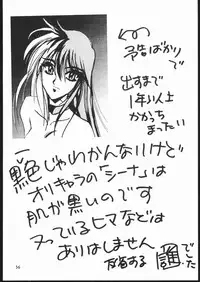 予告ばかりで
出すまで
1年以上
かかっちまったい
色じゃわかんないけど
オリキャラの「シーナ」は
肌が黒いのです
ヌっているヒマなどは
ありはしません
反省する
でした